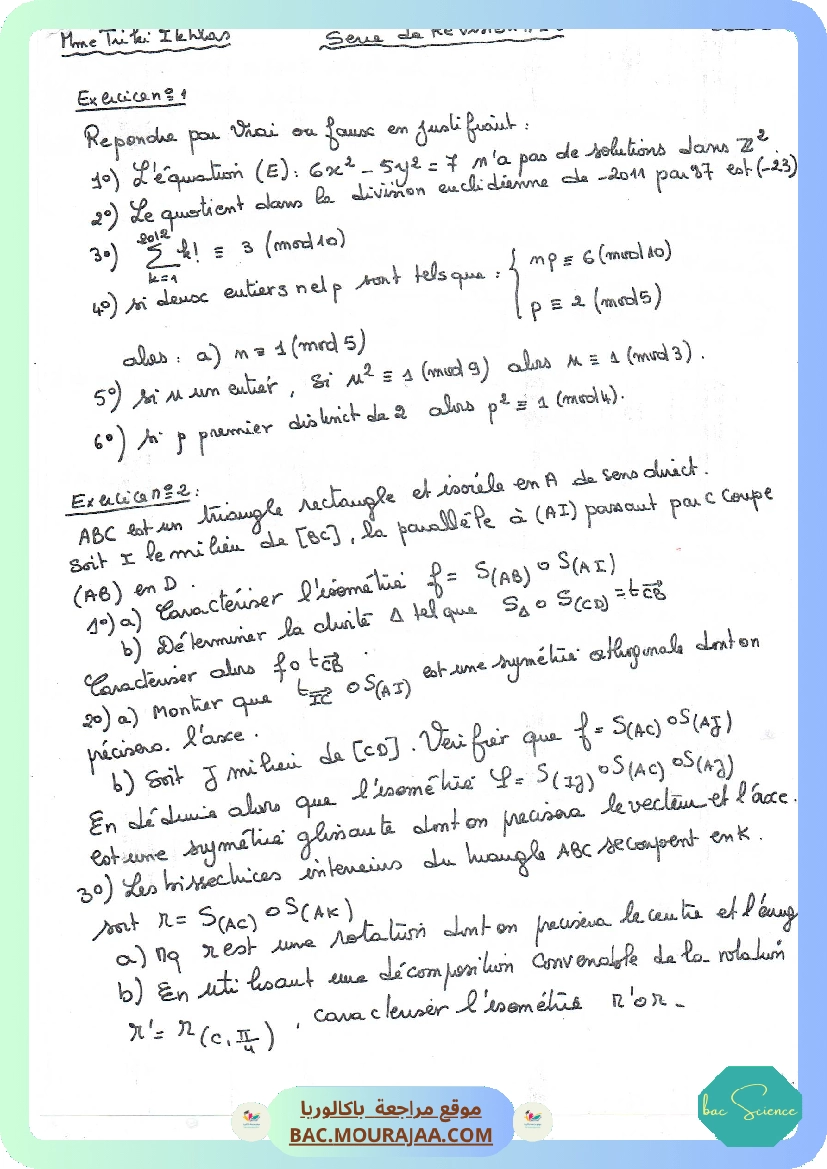 Mme Triki Ikhlas Serie de Revision
Exercice n°1
Repondre par Vrai ou fausc en justifiant :
1°) L'équation (E): 6x² - 5y² = 7 n'a pas de solutions dans ℤ².
2°) Le quotient dans la division euclidienne de -2011 par 87 est (-23)
3°) 2012 Σ k=1 k! ≡ 3 (mod 10)
4°) si deux entiers n et p sont tels que : { np ≡ 6 (mod 10)
p ≡ 2 (mod 5)
alors : a) n ≡ 1 (mod 5)
5°) si n un entier, si n² ≡ 1 (mod 9) alors n ≡ 1 (mod 3).
6°) si p premier distinct de 2 alors p² ≡ 1 (mod 4).
Exercice n°2 :
ABC est un triangle rectangle et isocèle en A de sens direct.
Soit I le milieu de [BC], la parallèle à (AI) passant par C coupe
(AB) en D.
1°) a) Caractériser l'isométrie f = S(AB) o S(AI)
b) Déterminer la droite Δ tel que SΔ o S(CD) = t→CB
Caractériser alors f o t→CB .
2°) a) Montrer que t→IC o S(AI) est une symétrie orthogonale dont on
précisera l'axe.
b) Soit J milieu de [CD]. Vérifier que f = S(AC) o S(AJ)
En déduire alors que l'isométrie φ = S(IJ) o S(AC) o S(AJ)
est une symétrie glissante dont on precisera le vecteur et l'axe.
3°) Les bissectrices interieurs du triangle ABC se coupent en K.
soit r = S(AC) o S(AK)
a) Mq r est une rotation dont on precisera le centre et l'ang
b) En utilisant une décomposition convenable de la rotation
r' = r(C, π/4) , caracteriser l'isométrie r' o r .
موقع مراجعة باكالوريا
BAC.MOURAJAA.COM
bac Science